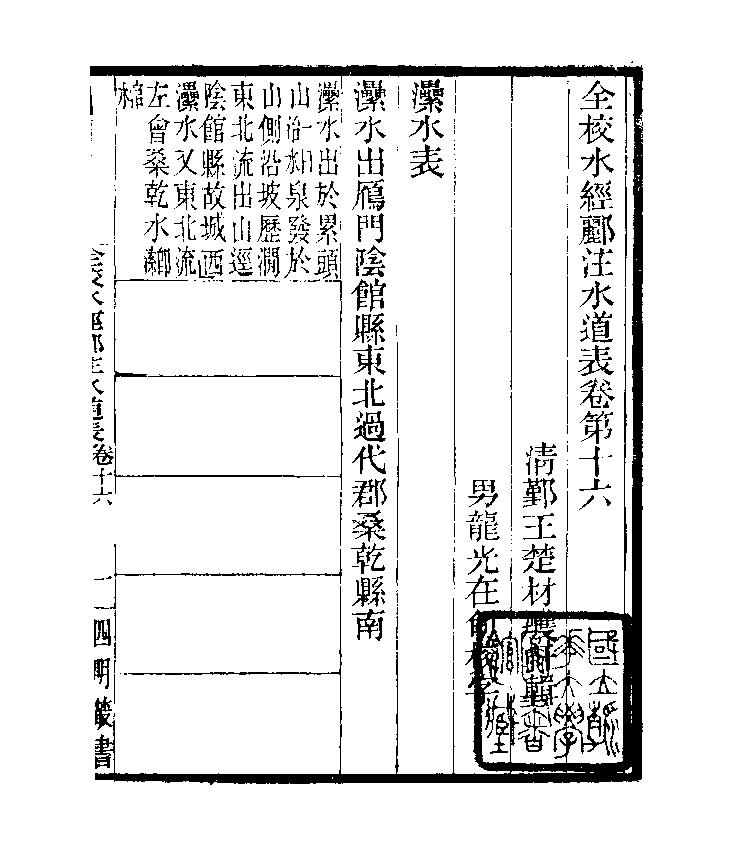 全校水經酈注水道表卷第十六
清鄞王楚材䕶軒輯
男龍光在
㶟水表
㶟水出鴈門陰館縣東北過代郡桑乾縣南
㶟水出於累頭
山一曰治水泉發於
山側沿坡歷澗
東北流出山逕
陰館縣故城西
㶟水又東北流
左會桑乾水鄉
水
全校水經酈注水道表卷十六
一
四明叢書